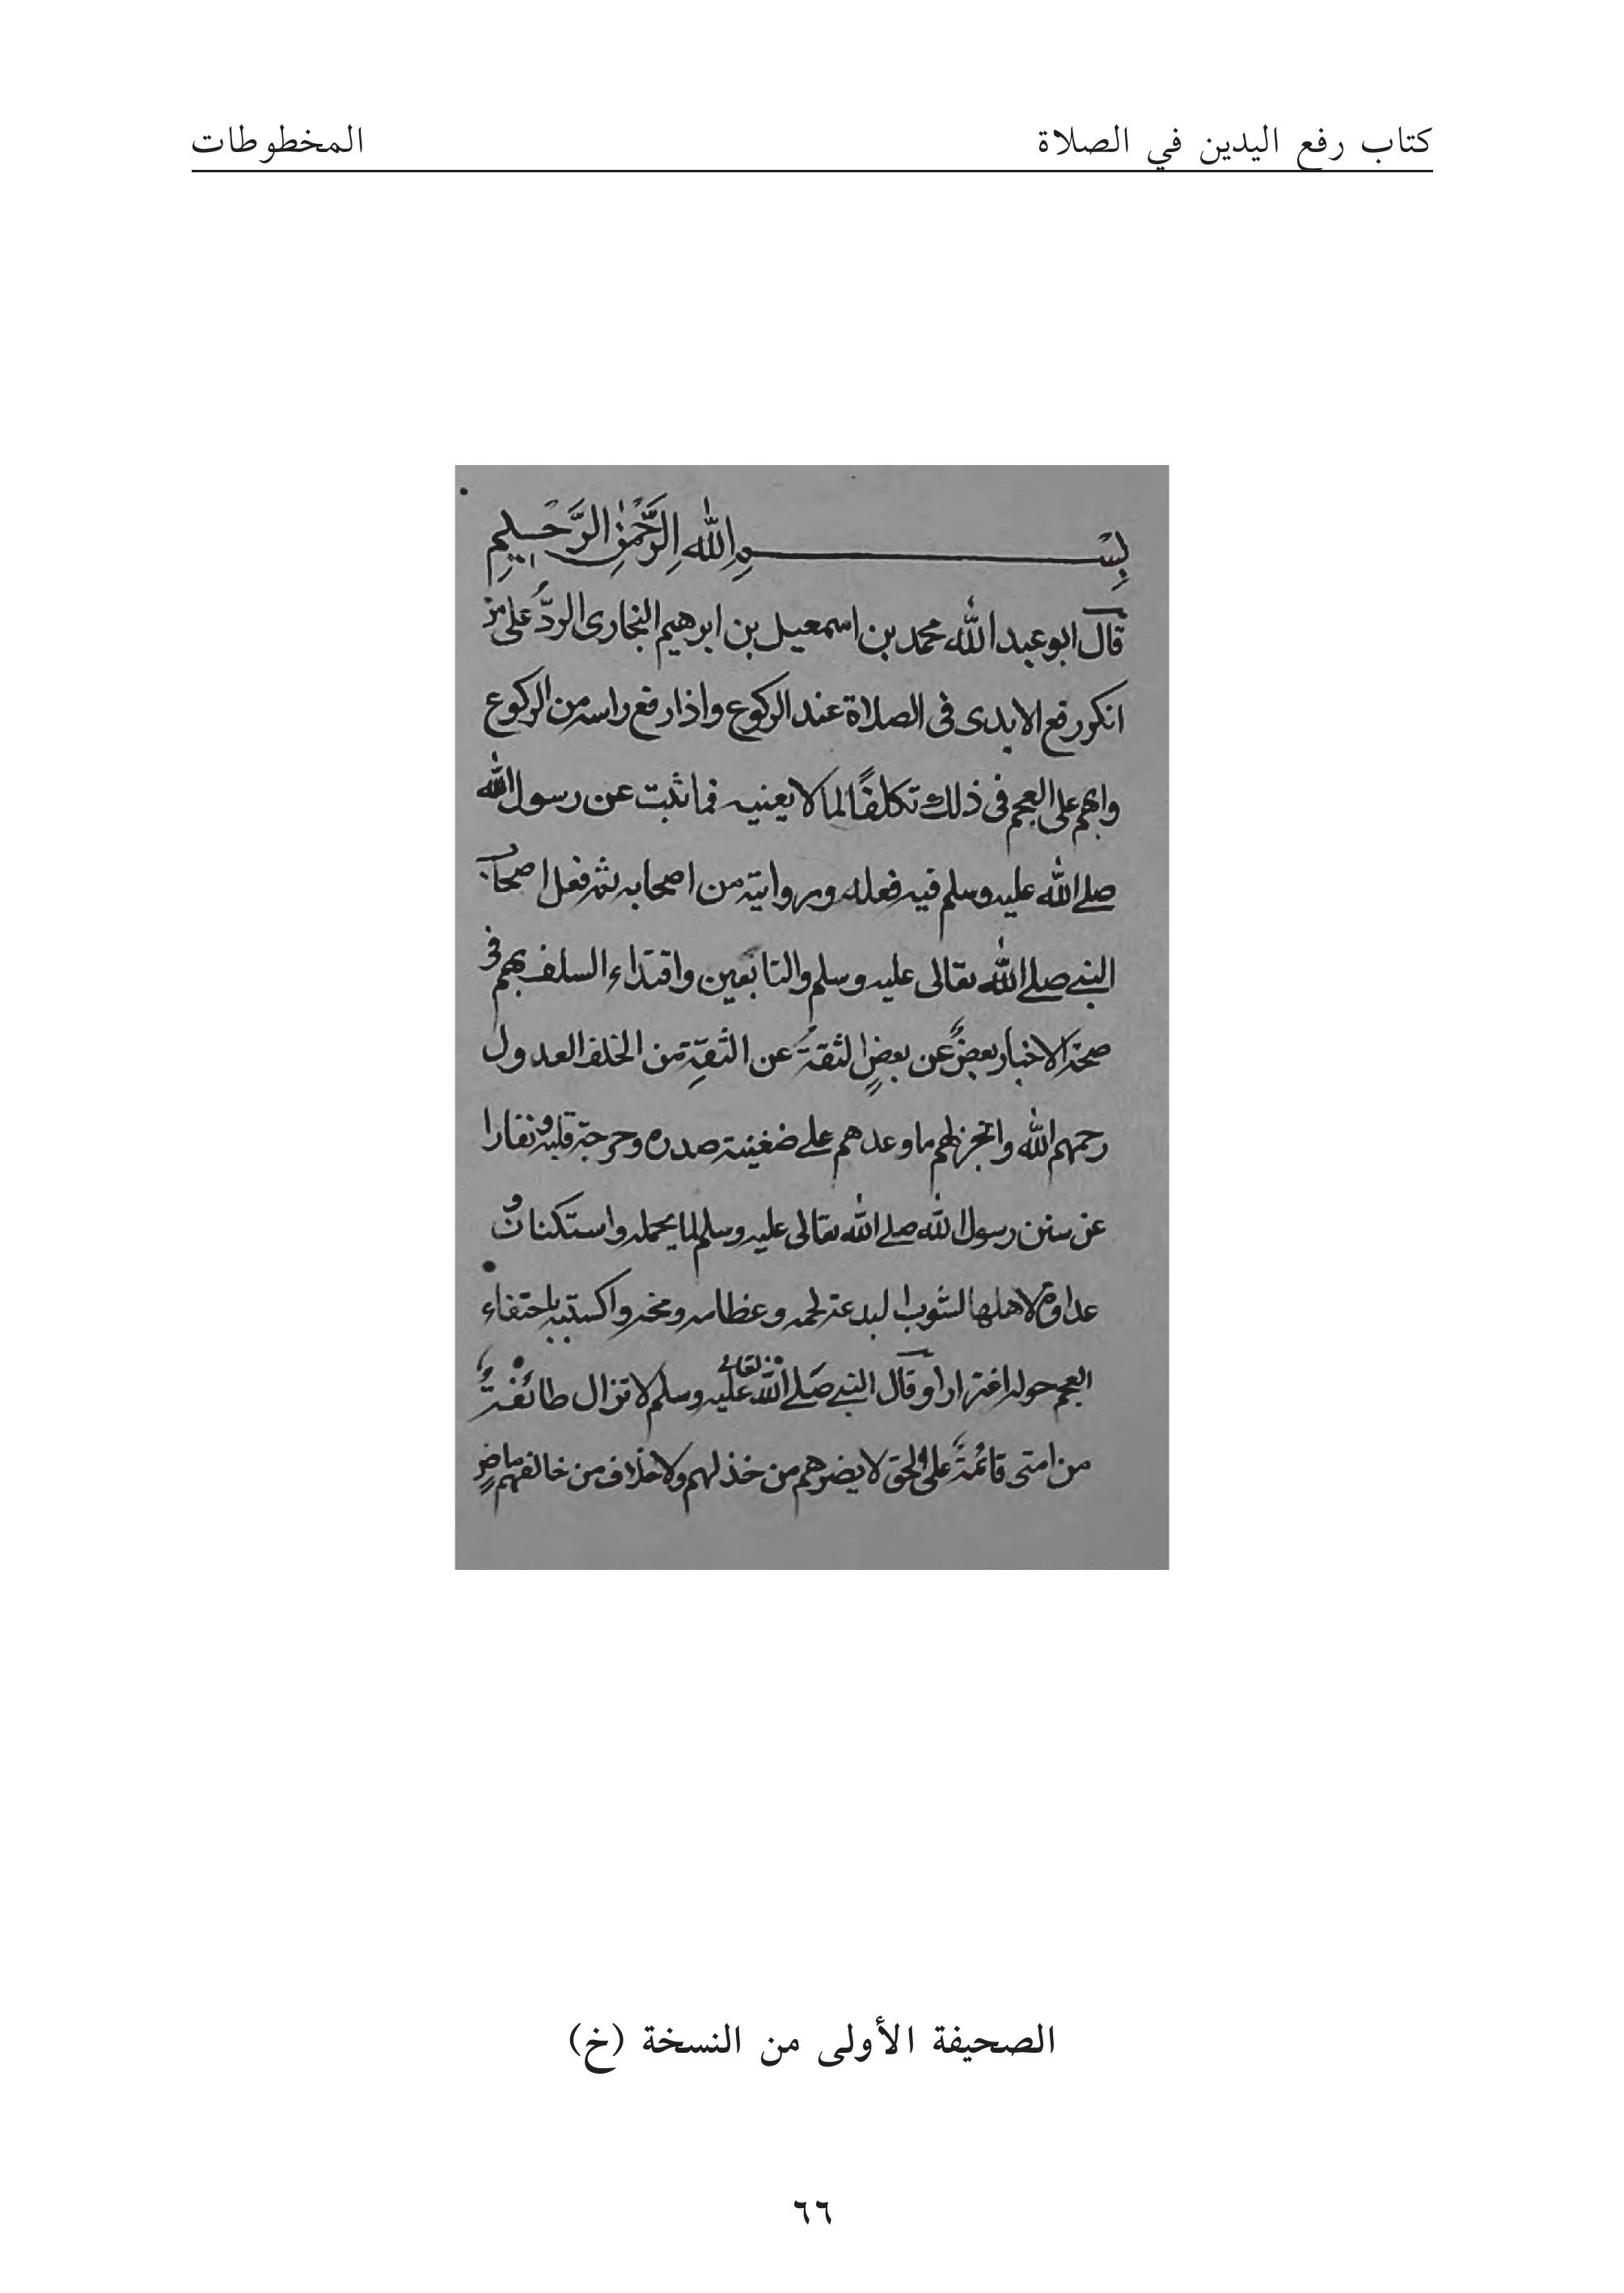 كتاب رفع اليدين في الصلاة
المخطوطات
بِسْمِ اللهِ الرَّحْمٰنِ الرَّحِيمِ
قال ابو عبد الله محمد بن اسمعيل بن ابرهيم البخارى الردُّ على من
انكر رفع الايدى فى الصلاة عند الركوع واذا رفع راسه من الركوع
وابهم على العجم فى ذلك تكلفًا لما لا يعنيه فما ثبت عن رسول الله
صلى الله عليه وسلم فيه فعله وروايته من اصحابه ثم فعل اصحاب
النبى صلى الله تعالى عليه وسلم والتابعين واقتداء السلف بهم فى
صحة الاخبار بعضٌ عن بعضٍ الثقةُ عن الثقةِ من الخلف العدول
رحمهم الله وانجز لهم ما وعدهم على ضغينة صدره وحرجة قلبه ونفارا
عن سنن رسول الله صلى الله تعالى عليه وسلم لما يحمله واستكنان
عداوة لاهلها لشوب البدعة لحمه وعظامه ومخه واكتسبه باحتفاء
العجم حوله اغترارا وقال النبى صلى الله تعالى عليه وسلم لا تزال طائفةٌ
من امتى قائمةً على الحق لا يضرهم من خذلهم ولا خلاف من خالفهم ماضٍ
الصحيفة الأولى من النسخة (خ)
٦٦